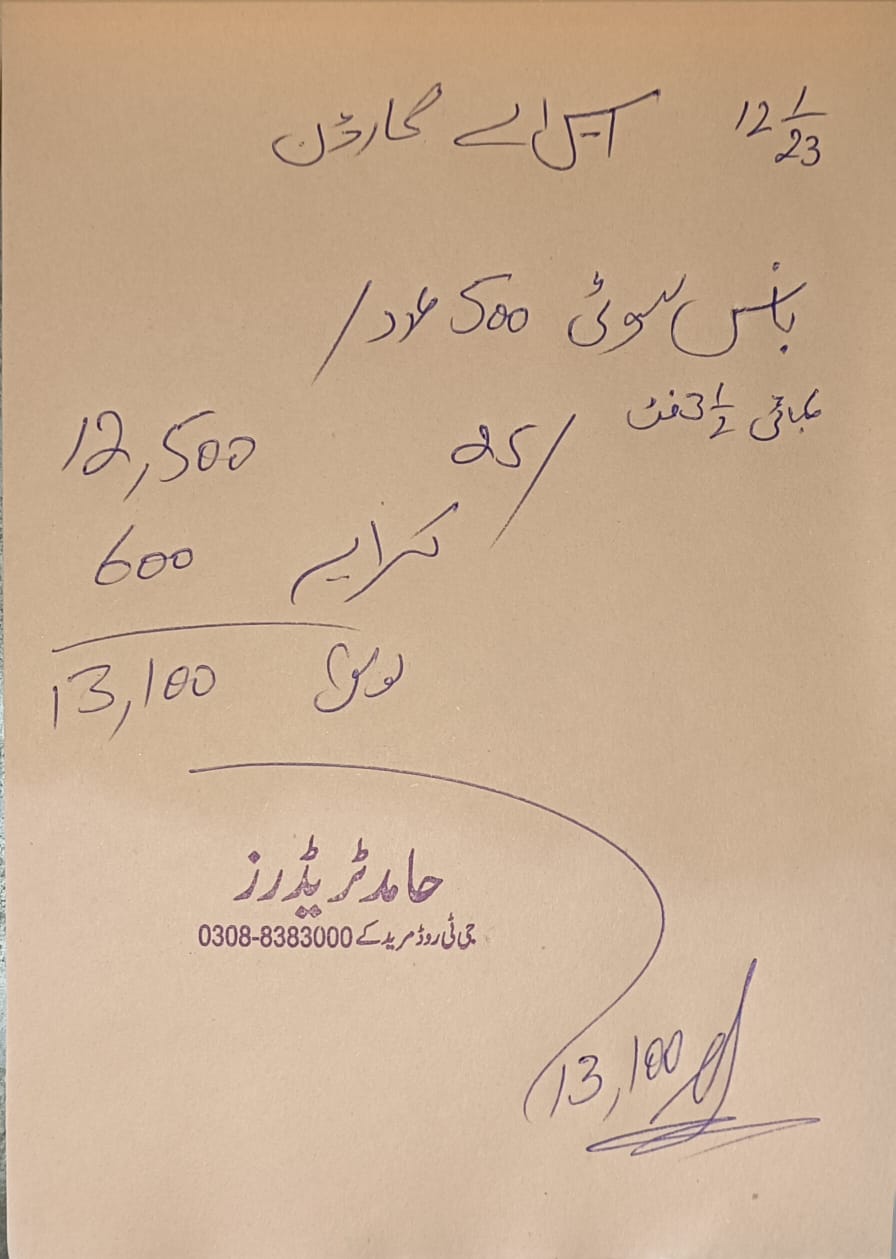 12 1/23 ایس اے گارڈن
بانس سوئی 500 عدد /
لمبائی 3 1/2 فٹ
25/ 12,500
کرایہ 600
13,100
حامد ٹریڈرز
جی ٹی روڈ مریدکے 0308-8383000
13,100